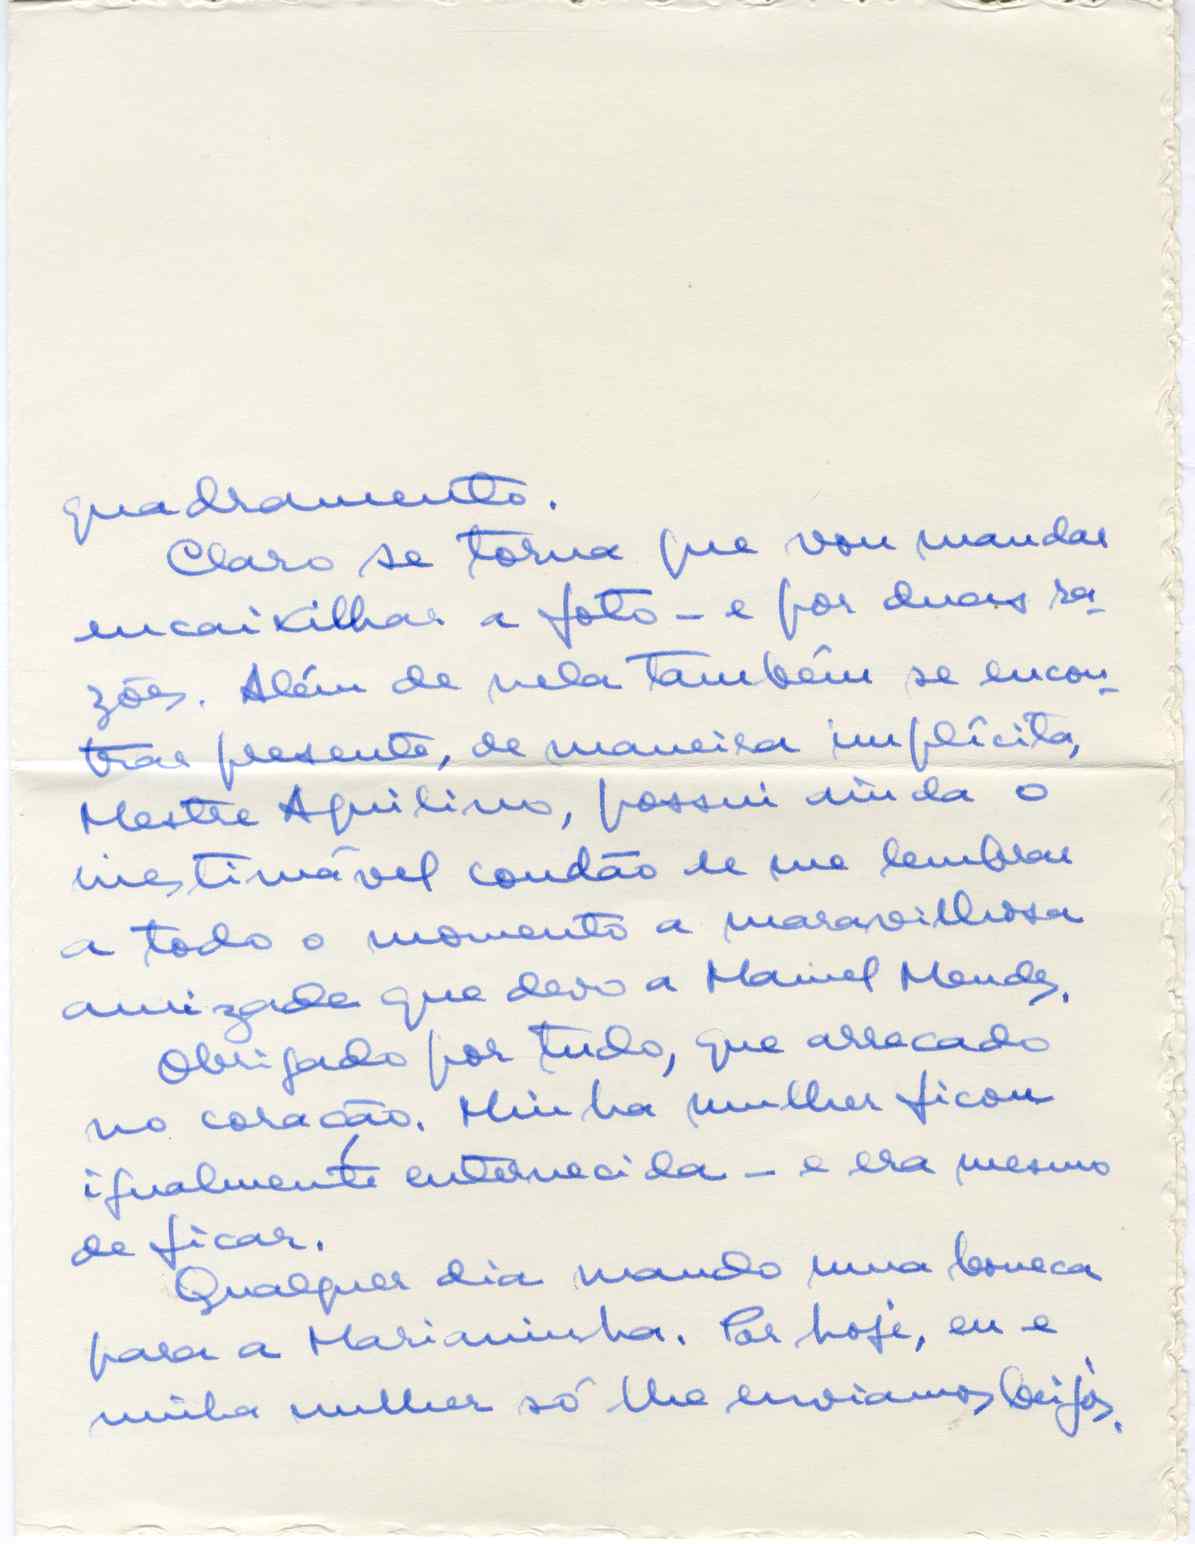 quadramento.
Claro se torna que vou mandar
encaixilhar a foto - e por duas ra-
zões. Além de nela também se encon-
trar presente, de maneira implícita,
Mestre Aquilino, possui ainda o
inestimável condão de me lembrar
a todo o momento a maravilhosa
amizade que devo a Manuel Mendes.
Obrigado por tudo, que arrecado
no coração. Minha mulher ficou
igualmente enternecida - e era mesmo
de ficar.
Qualquer dia mando uma boneca
para a Marianinha. Por hoje, eu e
minha mulher só lhe enviamos beijos.